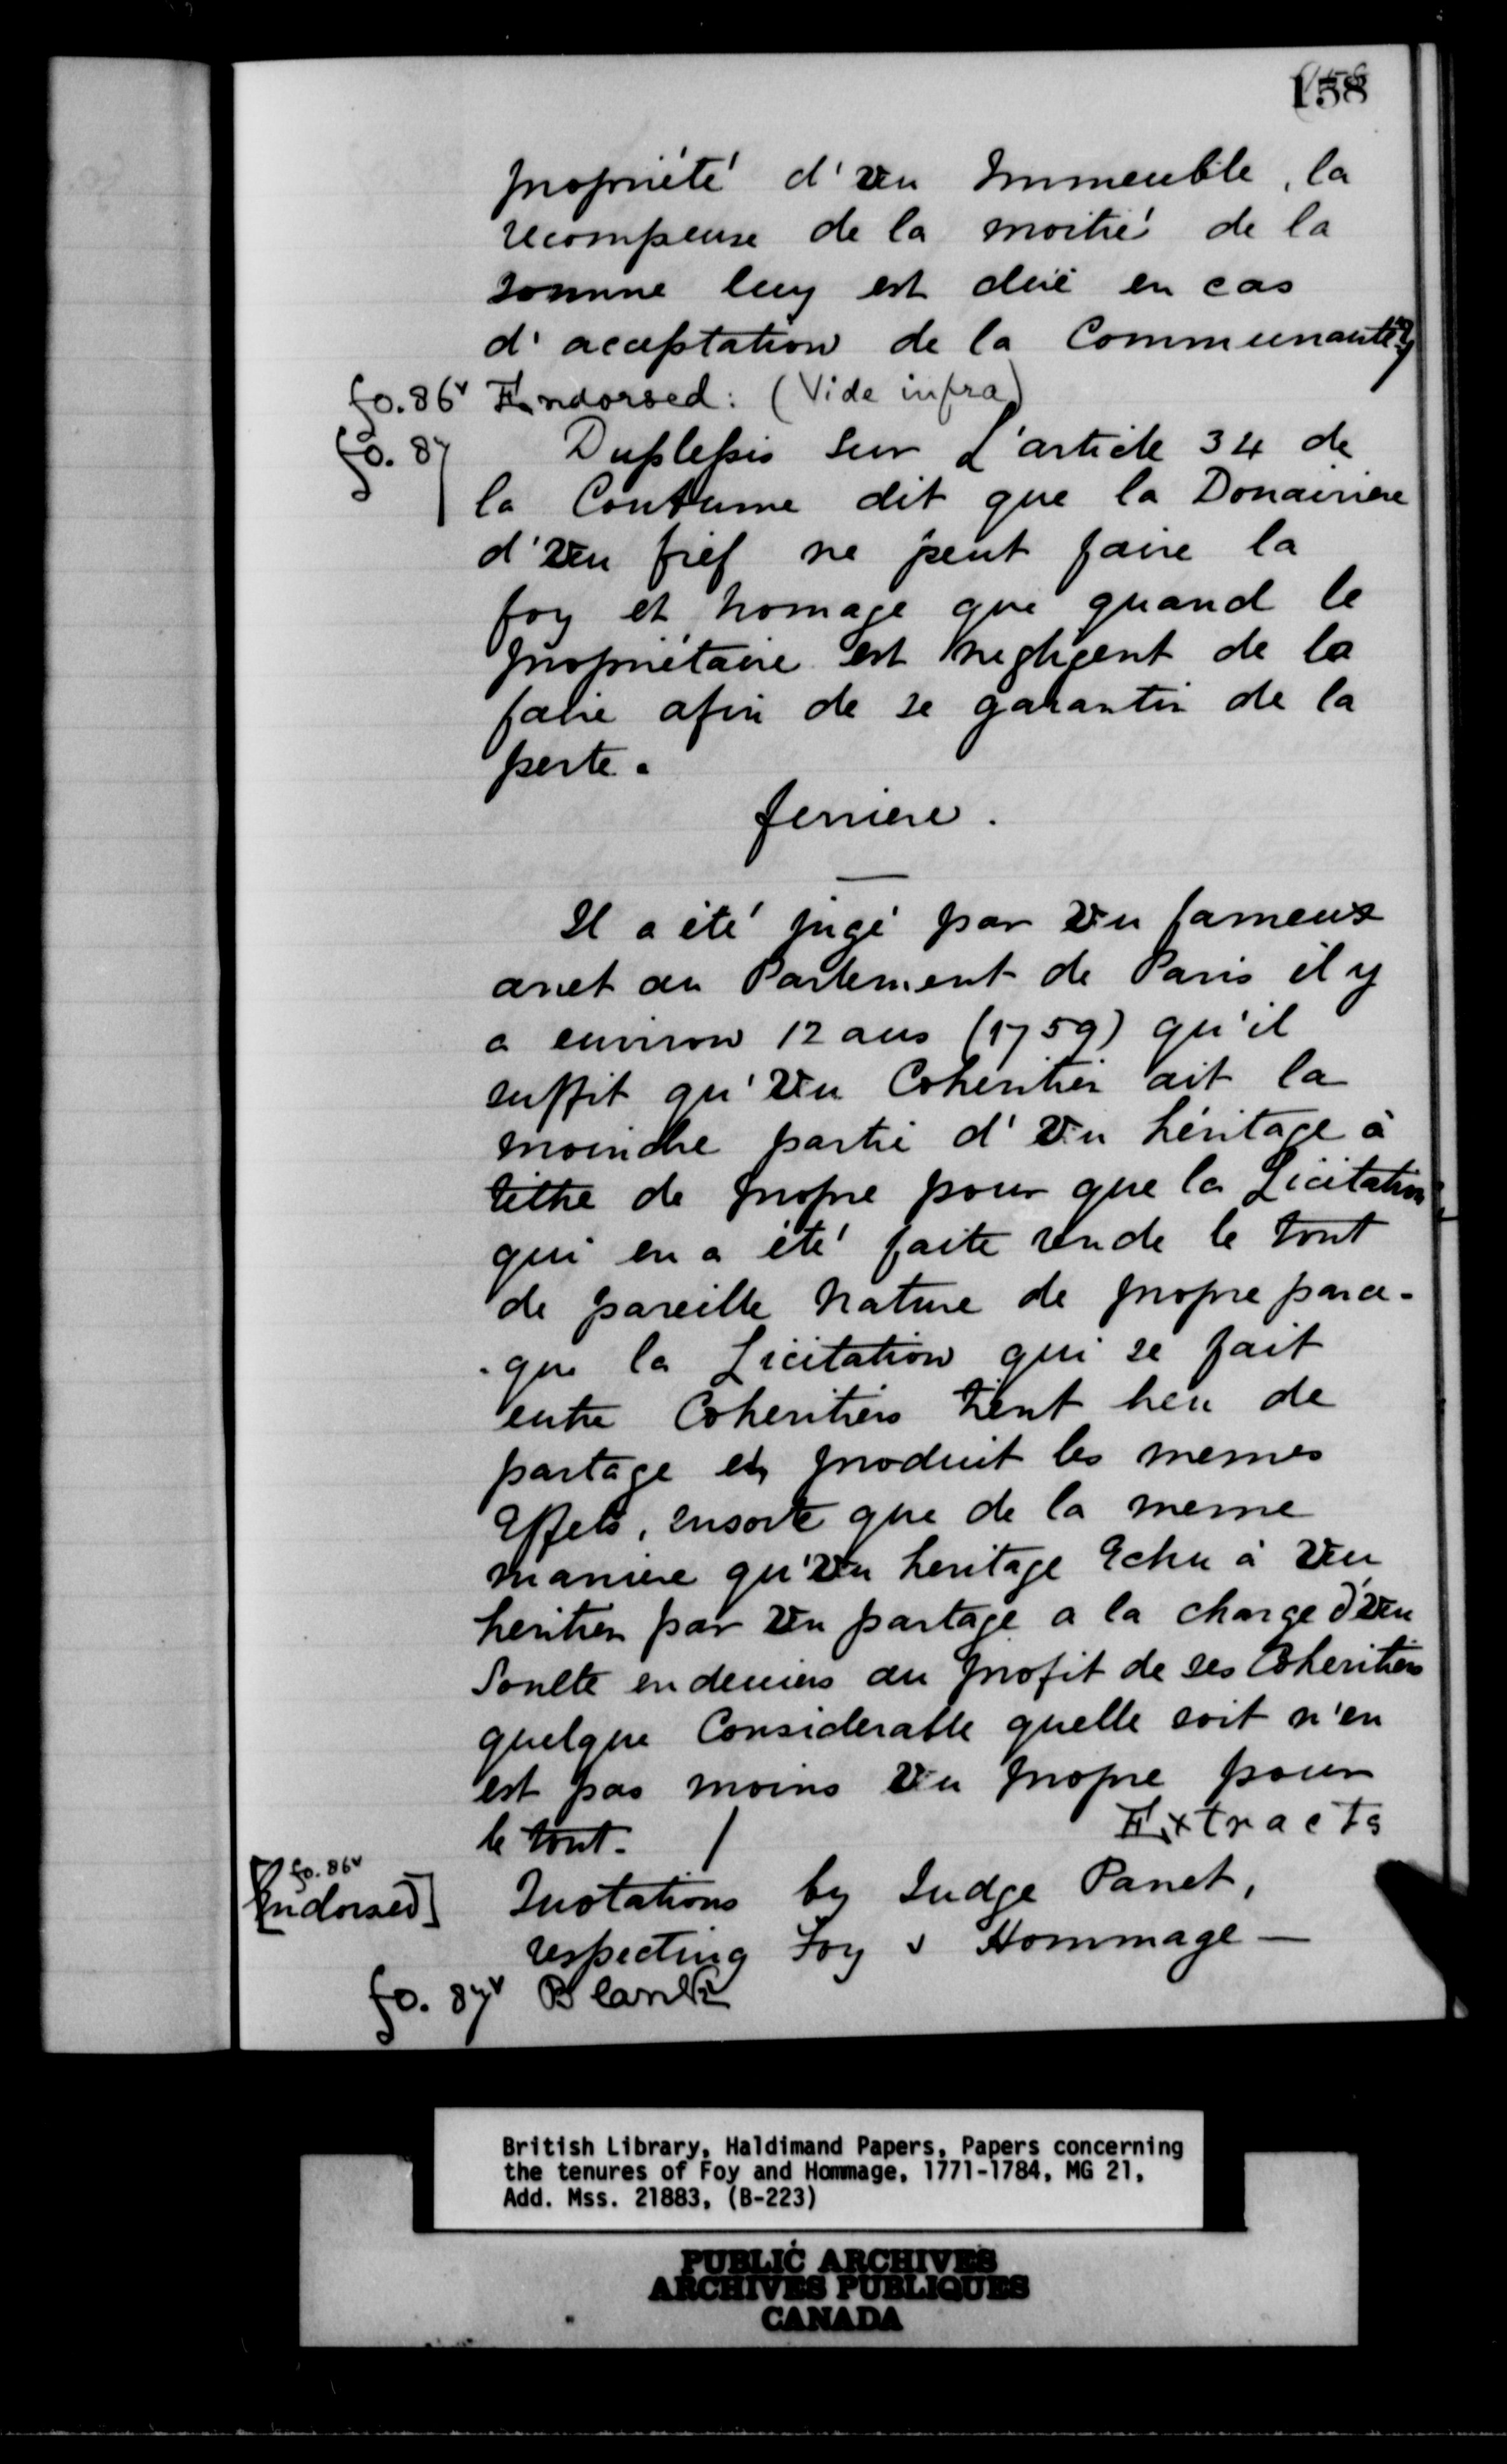 158
propriété d'Vn Immeuble, la
recompense de la moitié de la
somme luy est deüe en cas
d'acceptation de la Communauté
fo. 86v Endorsed: (Vide infra)
fo. 87 Duplessis sur L'article 34 de
la Coutume dit que la Douairiere
d'Vn fief ne peut faire la
foy et homage que quand le
propriétaire est negligent de la
faire afin de se garantir de la
perte.
ferriere.
Il a été jugé par Vn fameux
arret au Parlement de Paris il y
a environ 12 ans (1759) qu'il
suffit qu'Vn Coheritier ait la
moindre partie d'Vn héritage à
titre de propre pour que la Licitation
qui en a été faite rende le tout
de pareille Nature de propre parce-
-que la Licitation qui se fait
entre Coheritiers tient lieu de
partage et produit les memes
Effets, ensorte que de la meme
maniere qu'Vn heritage Echu à Vn
heritier par Vn partage a la charge d'Vn
Soulte en deniers au profit de ses Coheritiers
quelque Considerable quelle soit n'en
est pas moins Vn propre pour
le tout. / Extracts
[fo. 86v
Endorsed] Quotations by Judge Panet,
respecting Foy & Hommage —
fo. 87v Blank
British Library, Haldimand Papers, Papers concerning
the tenures of Foy and Hommage, 1771-1784, MG 21,
Add. Mss. 21883, (B-223)
PUBLIC ARCHIVES
ARCHIVES PUBLIQUES
CANADA